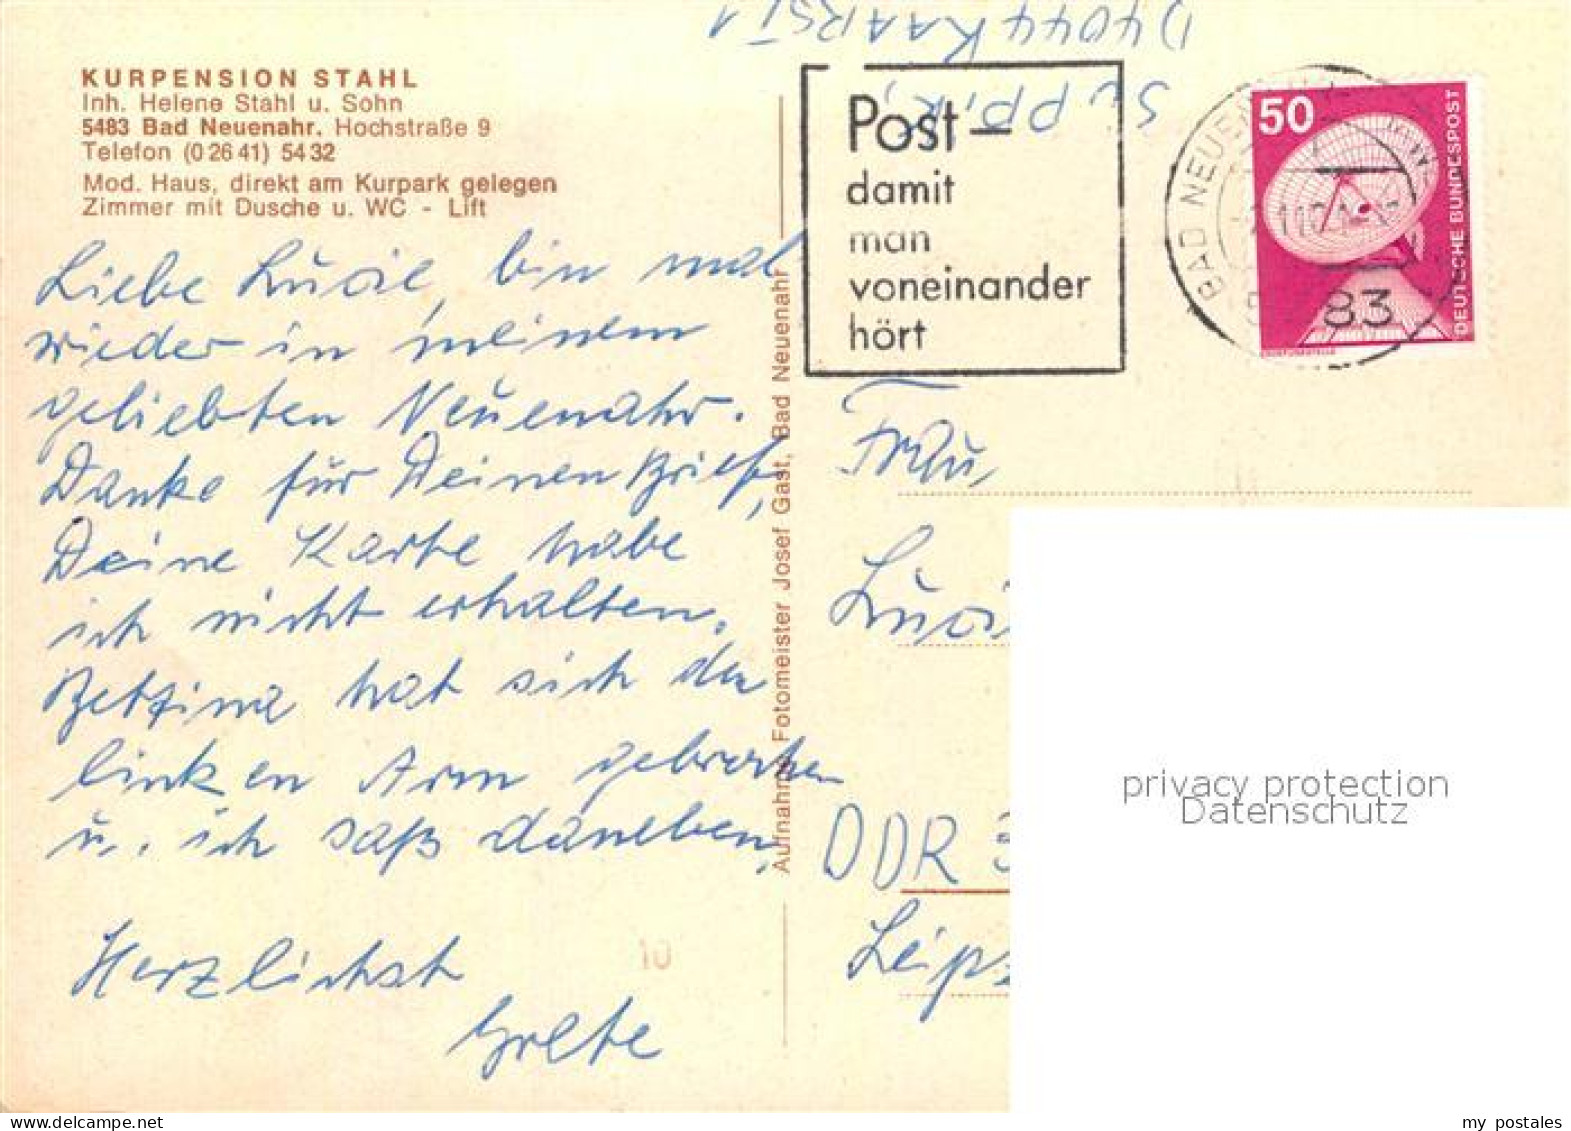 KURPENSION STAHL
Inh. Helene Stahl u. Sohn
5483 Bad Neuenahr. Hochstraße 9
Telefon (0 26 41) 54 32
Mod. Haus, direkt am Kurpark gelegen
Zimmer mit Dusche u. WC - Lift
Liebe Lucie, bin mal
wieder in meinem
geliebten Neuenahr.
Danke für Deinen Brief,
Deine Karte habe
ich nicht erhalten.
Bettina hat sich den
linken Arm gebrochen
u. ich saß daneben.
Herzlichst
Grete
10
Aufnahme Fotomeister Josef Gast, Bad Neuenahr
D 4044 KAARST 1
Post-
damit
man
voneinander
hört
BAD NEUENAHR
83
50
DEUTSCHE BUNDESPOST
Frau
Luci
DDR
Leipz
privacy protection
Datenschutz
my postales